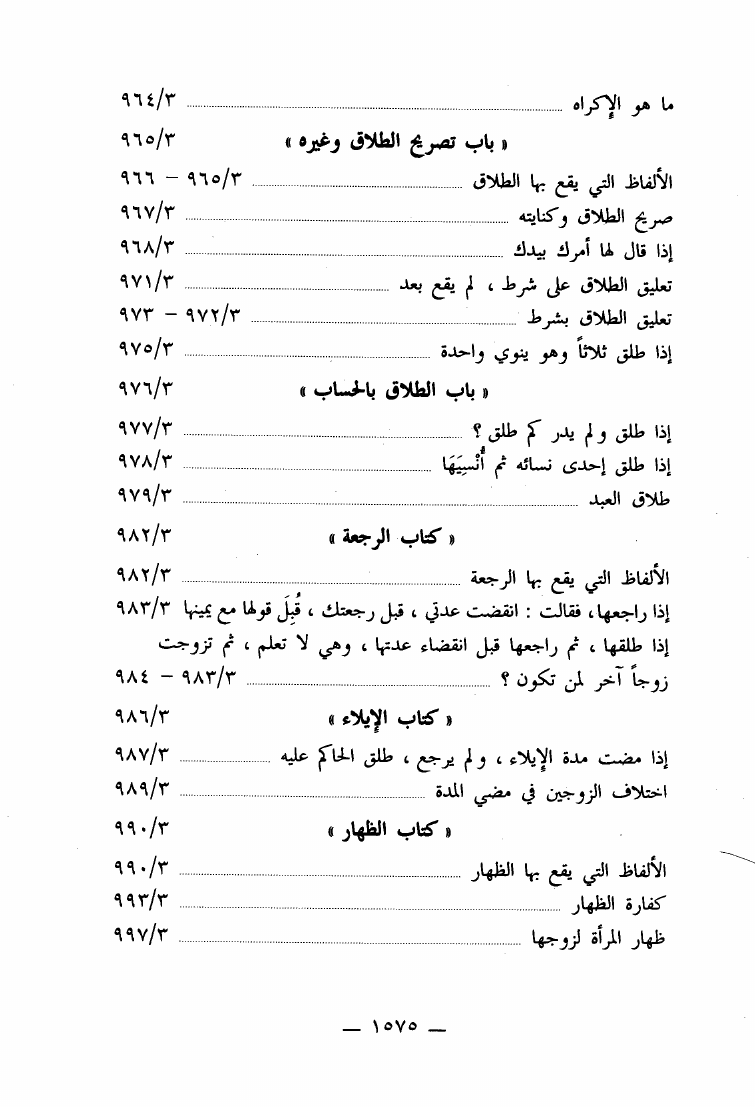 ما هو الإكراه ........ ٩٦٤/٣
« باب تصريح الطلاق وغيره » ٩٦٥/٣
الألفاظ التي يقع بها الطلاق ........ ٩٦٥/٣ – ٩٦٦
صريح الطلاق وكنايته ........ ٩٦٧/٣
إذا قال لها أمرك بيدك ........ ٩٦٨/٣
تعليق الطلاق على شرط ، لم يقع بعد ........ ٩٧١/٣
تعليق الطلاق بشرط ........ ٩٧٢/٣ – ٩٧٣
إذا طلق ثلاثاً وهو ينوي واحدة ........ ٩٧٥/٣
« باب الطلاق بالحساب » ٩٧٦/٣
إذا طلق ولم يدر كم طلق ؟ ........ ٩٧٧/٣
إذا طلق إحدى نسائه ثم أُنْسِيَهَا ........ ٩٧٨/٣
طلاق العبد ........ ٩٧٩/٣
« كتاب الرجعة » ٩٨٢/٣
الألفاظ التي يقع بها الرجعة ........ ٩٨٢/٣
إذا راجعها، فقالت : انقضت عدتي ، قبل رجعتك ، قُبِلَ قولها مع يمينها ٩٨٣/٣
إذا طلقها ، ثم راجعها قبل انقضاء عدتها ، وهي لا تعلم ، ثم تزوجت
زوجاً آخر لمن تكون ؟ ........ ٩٨٣/٣ – ٩٨٤
« كتاب الإيلاء » ٩٨٦/٣
إذا مضت مدة الإيلاء ، ولم يرجع ، طلق الحاكم عليه ........ ٩٨٧/٣
اختلاف الزوجين في مضي المدة ........ ٩٨٩/٣
« كتاب الظهار » ٩٩٠/٣
الألفاظ التي يقع بها الظهار ........ ٩٩٠/٣
كفارة الظهار ........ ٩٩٣/٣
ظهار المرأة لزوجها ........ ٩٩٧/٣
— ١٥٧٥ —